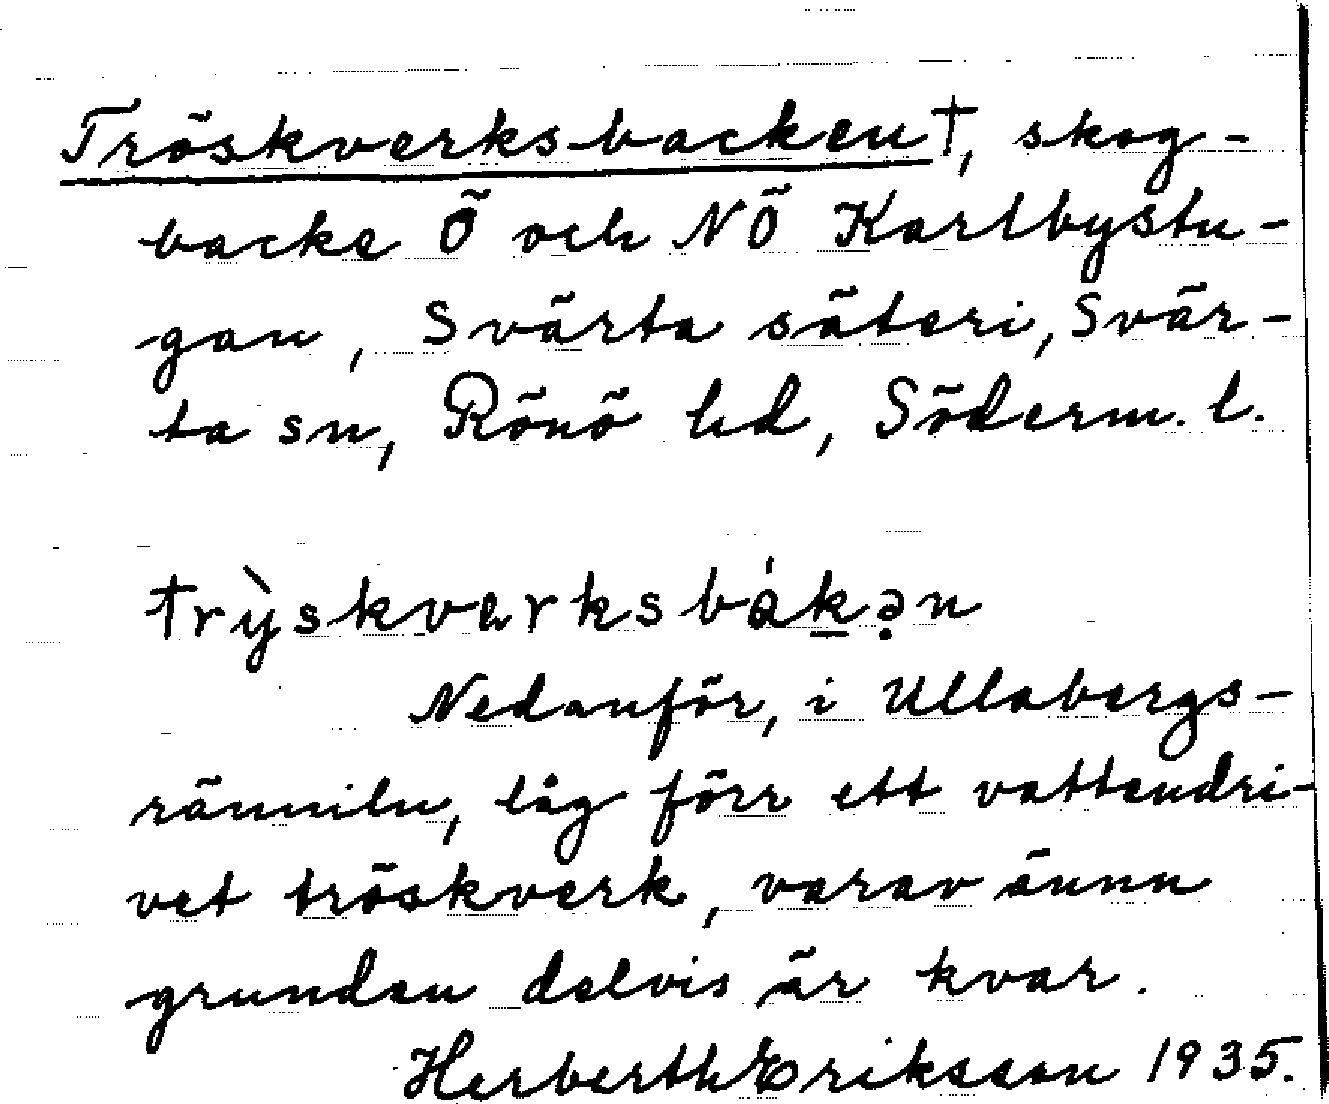 Tröskverksbacken†, skog-
backe Ö och NÖ Karlbystu-
gan, Svärta säteri, Svär-
ta sn, Rönö hd, Söderm. l.
trỳskværksbákə̣n
Nedanför, i Ullabergs-
ränniln, låg förr ett vattendri-
vet tröskverk, varav ännu
grunden delvis är kvar.
Herberth Eriksson 1935.